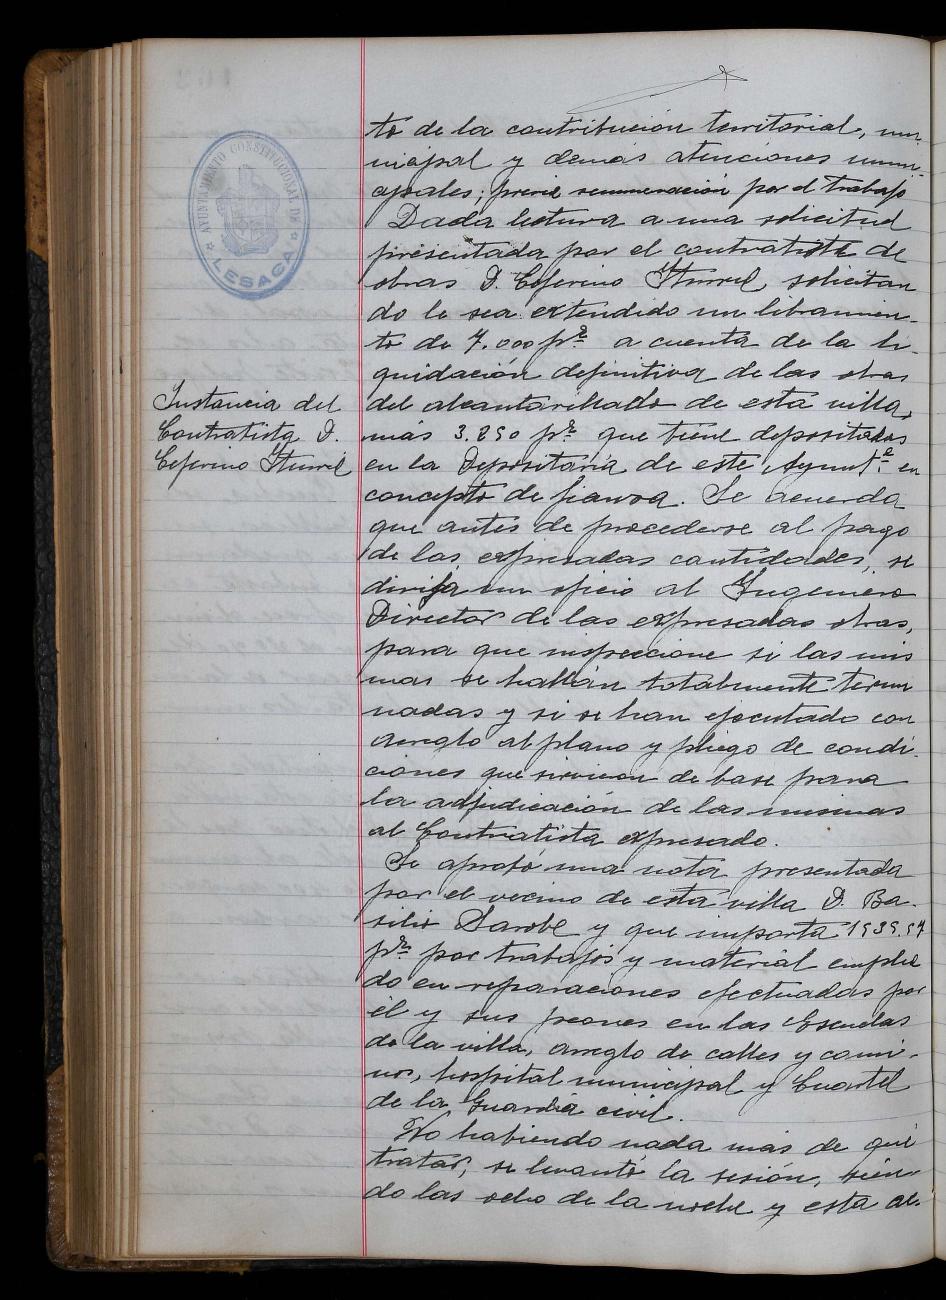 AYUNTAMIENTO CONSTITUCIONAL DE
LESACA
Instancia del
Contratista D.
Ceferino Iturria
to de la contribución territorial, mu-
nicipal y demás atenciones muni-
cipales; previa remuneración por el trabajo
Dada lectura a una solicitud
presentada por el contratista de
obras D. Ceferino Iturria solicitan
do le sea extendido un libramien-
to de 7.000 pts a cuenta de la li-
quidación definitiva de las obras
del alcantarillado de esta villa,
más 3.250 pts que tiene depositadas
en la Depositaría de este Ayunt.º en
concepto de fianza. Se acuerda
que antes de procederse al pago
de las expresadas cantidades, se
dirija un oficio al Ingeniero
Director de las expresadas obras,
para que inspeccione si las mis
mas se hallan totalmente termi
nadas y si se han ejecutado con
arreglo al plano y pliego de condi-
ciones que sirvieron de base para
la adjudicación de las mismas
al Contratista expresado.
Se aprobó una nota presentada
por el vecino de esta villa D. Ba-
silio Sarobe y que importa
pts por trabajos y material emplea
do en reparaciones efectuadas por
él y sus peones en las Escuelas
de la villa, arreglo de calles y cami-
nos, hospital municipal y Cuartel
de la Guardia civil.
No habiendo nada más de qué
tratar, se levantó la sesión, sien-
do las ocho de la noche y esta ac-